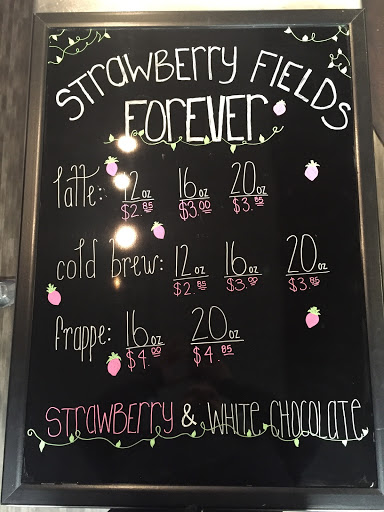 STRAWBERRY FIELDS
FOREVER
latte: 12 oz 16 oz 20 oz
$2.85 $3.00 $3.85
cold brew: 12 oz 16 oz 20 oz
$2.85 $3.00 $3.85
frappe: 16 oz 20 oz
$4.00 $4.85
STRAWBERRY & WHITE CHOCOLATE